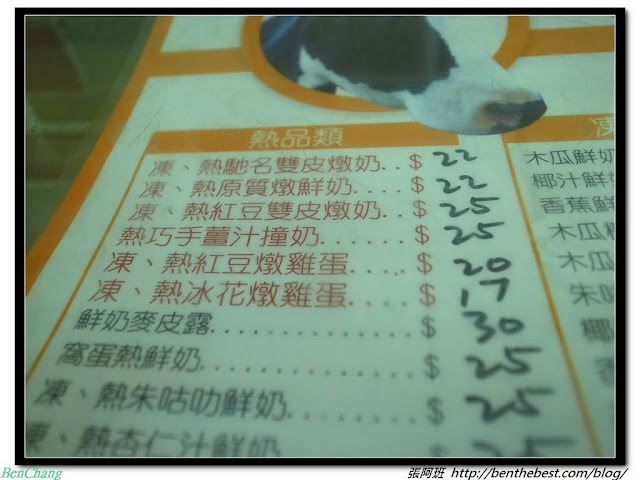 熱品類
凍、熱馳名雙皮燉奶..$ 22
凍、熱原質燉鮮奶...$ 22
凍、熱紅豆雙皮燉奶..$ 25
熱巧手薑汁撞奶......$ 25
凍、熱紅豆燉雞蛋.....$ 20
凍、熱冰花燉雞蛋.....$ 17
鮮奶麥皮露..............$ 30
窩蛋熱鮮奶..............$ 25
凍、熱朱咕叻鮮奶......$ 25
凍、熱杏仁汁鮮奶......$ 25
凍
木瓜鮮奶
椰汁鮮
香蕉鮮
木瓜
木瓜
朱咕
椰
BenChang
張阿班 http://benthebest.com/blog/